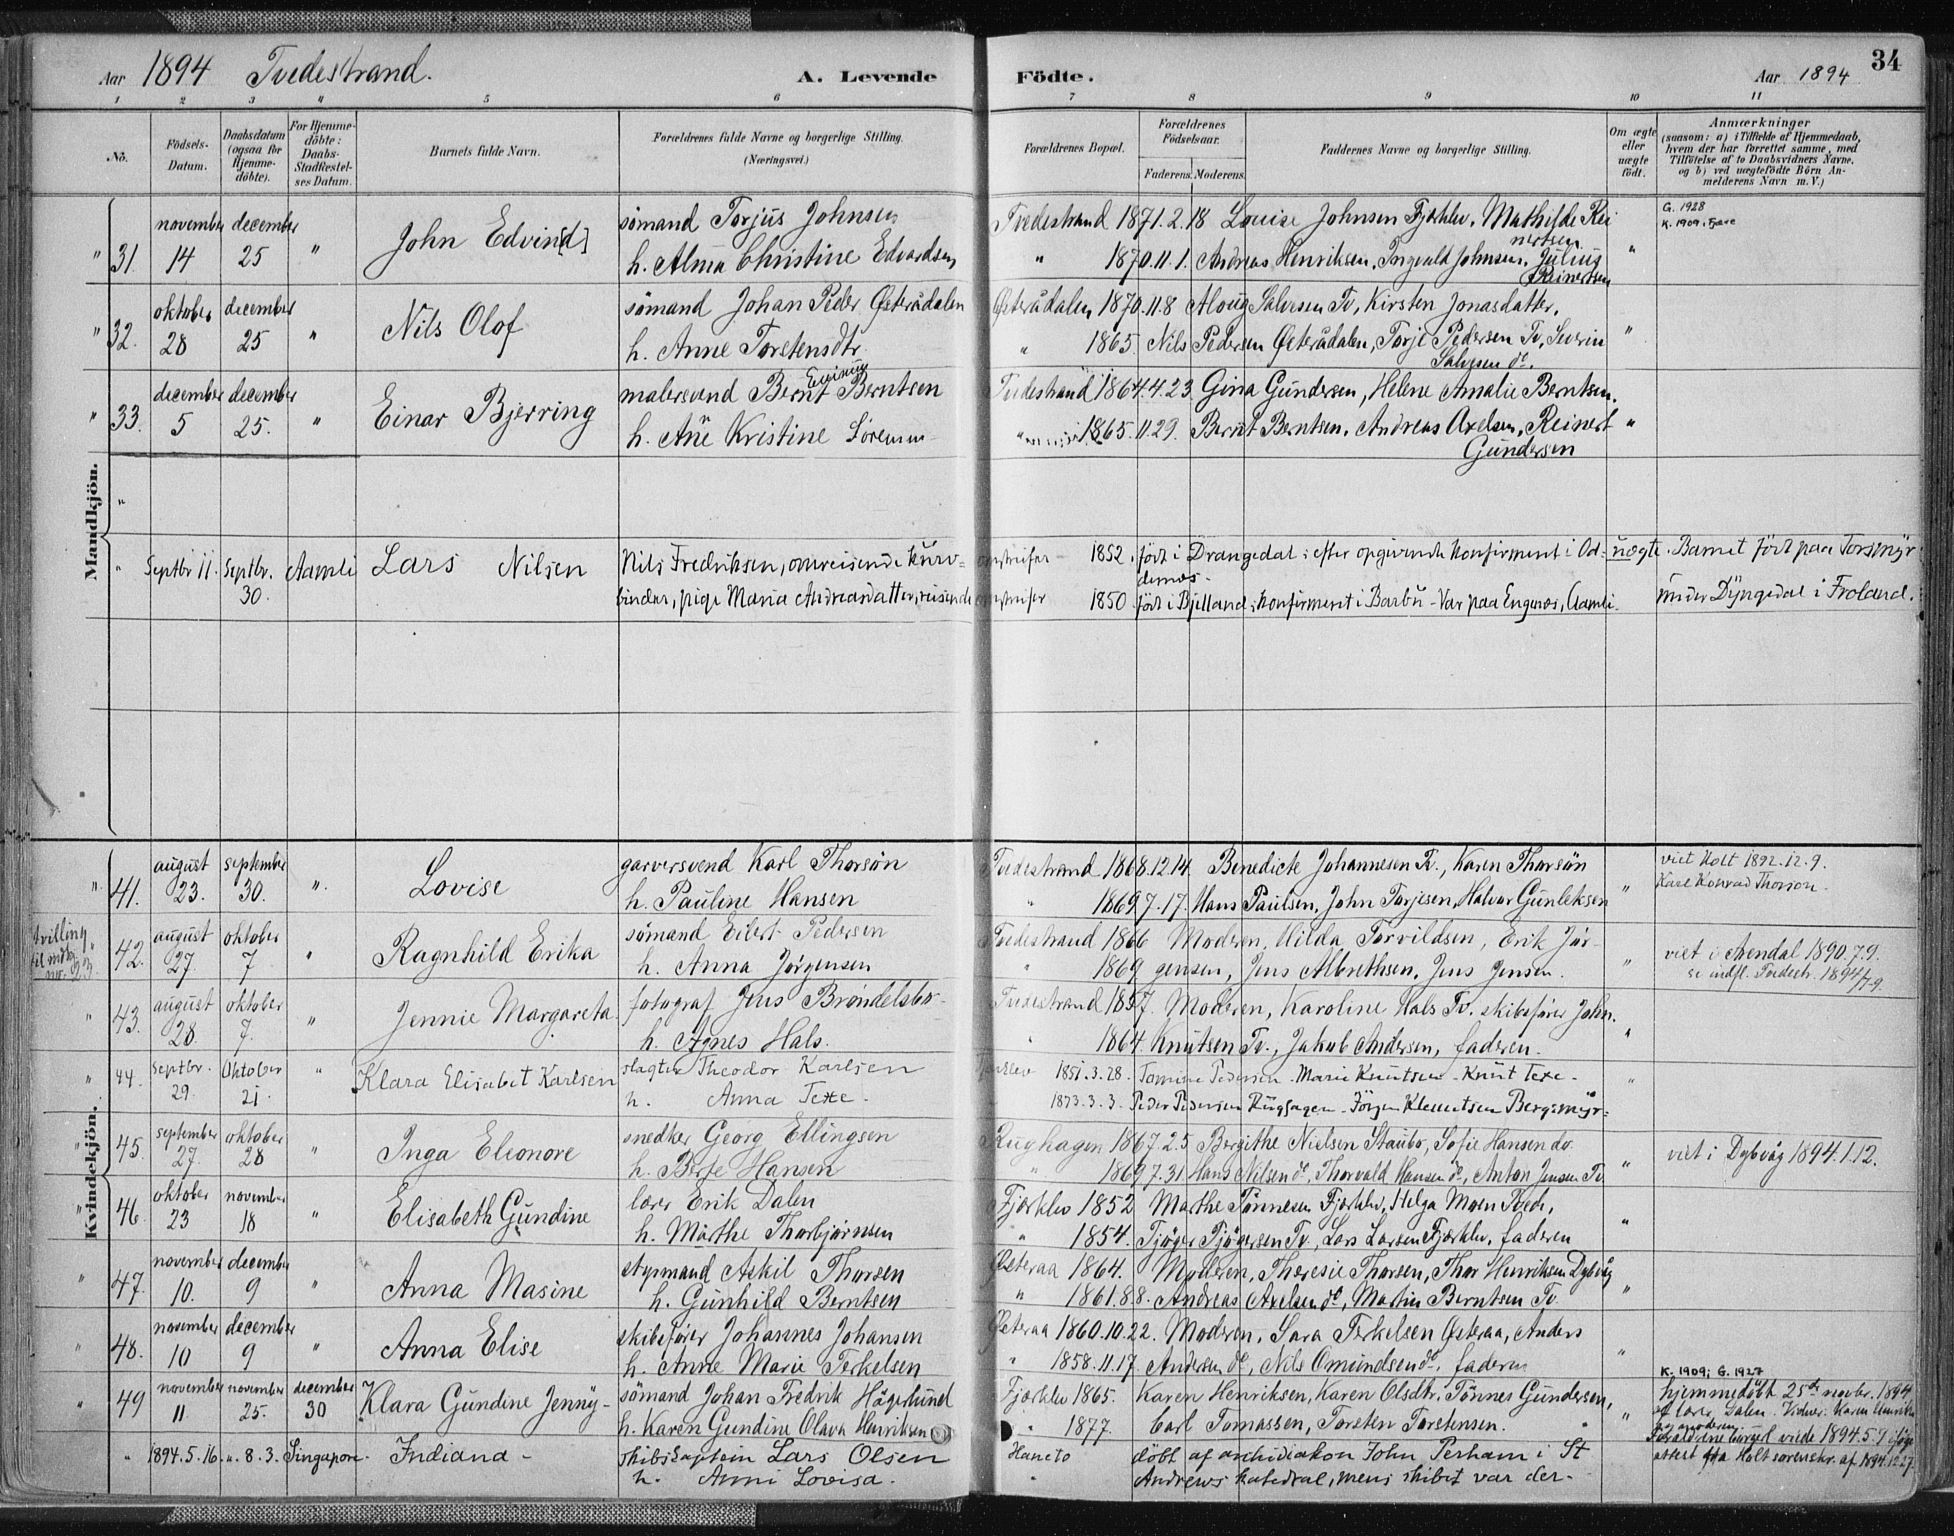 34
Aar 1894 Tvedestrand. A. Levende Födte. Aar 1894
1 2 3 4 5 6 7 8 9 10 11
No.
Födsels-Datum.
Daabsdatum (ogsaa for Hjemme-döbte).
For Hjemme-döbte: Daabs-Stadfæstel-ses Datum.
Barnets fulde Navn.
Forældrenes fulde Navne og borgerlige Stilling. (Næringsvei.)
Forældrenes Bopæl.
Forældrenes Födselsaar.
Faderens. Moderens.
Faddernes Navne og borgerlige Stilling.
Om ægte eller uægte födt.
Anmærkninger
(saasom: a) i Tilfælde af Hjemmedaab, hvem der har forrettet samme, med Tilföielse af to Daabsvidners Navne, og b) ved uægtefödte Börn An-melderens Navn m. V.)
Mandkjön.
" 31. november 14 december 25 " John Edvin[d] sömand Torjus Johnsen Tvedestrand 1871.2.18 Louise Johnsen Fjærklev, Mathilde Rei nertsen G. 1928
h. Alma Christine Edvardsen " 1870.11.1. Andreas Henriksen, Ingvald Johnsen, Julius Reinertsen " K. 1909, Fjære
" 32. oktober 28 december 25 " Nils Olof sömand Johan Peder Österådalen Österådalen 1870.11.8 Aloug Salvesen Tv, Kirsten Jonasdatter,
h. Anne Torstensdtr " 1865 Nils Pedersen Österådalen, Torje Pedersen Tv, Severin Salvesen do. "
" 33. december 5 december 25. " Einar Bjerring malersvend Bernt Berntsen Tvedestrand 1864.4.23 Gina Gundersen, Helene Amalie Berntsen,
h. Ane Kristine Sörensen " 1865.11.29. Bernt Berntsen, Andreas Axelsen, Reinert Gundersen "
"
" Septbr 11. Septbr. 30. Aamli Lars Nilsen Nils Fredriksen, omreisende kurv- omstreifer 1852. födt i Drangedal; efter opgivende konfirmert i Od- dernes. uægte. Barnet födt paa Torsmyr
binder, pige Maria Andreasdatter, reisende omstreifer 1850. födt i Bjelland; konfirmeret i Barbu - Var paa Engenes, Aamli. under Dyngedal i Froland.
Kvindekjön.
" 41. august 23. september 30. " Lovise garversvend Karl Thorsön Tvedestrand 1868.12.14. Benedicte Johannesen Tv., Karen Thorsön viet Holt 1892.12.9.
h. Pauline Hansen " 1869 7.17. Hans Paulsen, John Torjesen, Halvor Gunleksen " Karl Konrad Thorson.
tvilling til mdk. nr. 23 " 42. august 27. oktober 7 " Ragnhild Erika sömand Eilert Pedersen Tvedestrand 1866 Moderen, Hilda Torvildsen, Erik Jör- viet i Arendal 1890.7.9.
h. Anna Jörgensen " 1869 gensen, Jens Albrethsen, Jens Jensen. " se indfl. Tvedestr. 1894/79.
" 43. august 28. oktober 7. " Jennie Margareta. fotograf Jens Bröndelsbo- Tvedestrand 1857. Moderen, Karoline Hals Tv. skibsförer John.
h. Agnes Hals. " 1864. Knutsen Tv., Jakob Andersen, faderen. "
" 44. Septbr. 29. Oktober 21. " Klara Elisabet Karlsen slagter Theodor Karlsen 1851.3.28. Tomine Pedersen - Marie Knutsen - Knut Texe - "
h. Anna Texe. 1873.3.3. Peder Pedersen Rughagen - Jörgen Klemetsen Bergsmyr-
" 45. september 27. oktober 28 " Inga Eleonore snedker Georg Ellingsen Rughagen 1867.2.5 Bergithe Nielsen Staubo, Sofie Hansen do. viet i Dybvåg 1894.1.12.
h. Berte Hansen " 1869 7.31 Hans Nilsen do, Thorvald Hansen do, Anton Jensen Tv "
" 46. oktober 23 november 18 " Elisabeth Gundine lærer Erik Dalen Fjærklev 1852 Marthe Tönnesen Fjærklev, Helga Moen Tvede,
h. Marthe Thorbjörnsen " 1854. Tjöger Tjögersen Tv., Lars Larsen Fjærklev, faderen "
" 47. november 10. december 9 " Anna Masine styrmand Askil Thorsen Österaa 1864. Moderen, Theresie Thorsen, Thor Henriksen Dybvåg
h. Gunhild Berntsen " 1861.8.8. Andreas Axelsen do, Martin Berntsen Tv. "
" 48. november 10 december 9 " Anna Elise skibsförer Johannes Johansen Österaa 1860.10.22. Moderen, Sara Terkelsen Österaa, Anders
h. Anne Marie Terkelsen " 1858.11.17. Andersen do, Nils Omundsen do, faderen "
" 49 november 11. november 25. december 30 Klara Gundine Jenny- sömand Johan Fredrik Högerlund Fjærklev 1865. Karen Henriksen, Karen Olsdtr. Tönnes Gundersen, K. 1909; G. 1927 hjemmedöbt 25de novbr. 1894
h. Karen Gundine Olava Henriksen " 1877. Carl Tomassen, Torsten Torstensen. " af lærer Dalen. Vidner: Karen Henriksen og moderen.
Forældrene borgerl. viede 1894.5.9 ifölge
" 1894.5.16. ". 8.3. Singapore. Indiana - skibskaptein Lars Olsen Haneto döbt af archidiakon John Perham i St attest fra Holt sorenskr. af 1894.12.27.
h. Anni Lovisa. " Andrews katedral, mens skibet var der-